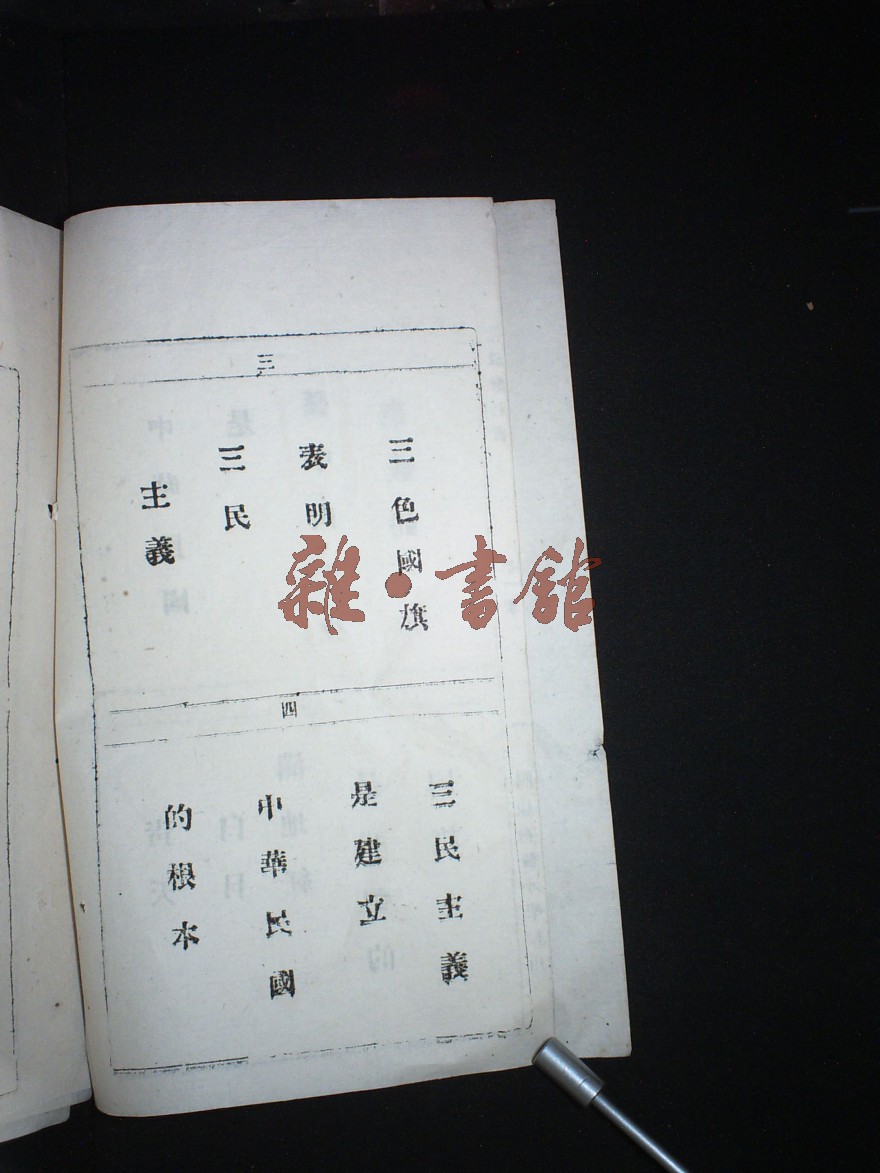 三
三色國旗
表明
三民
主義
四
三民主義
是建立
中華民國
的根本
雜·書館